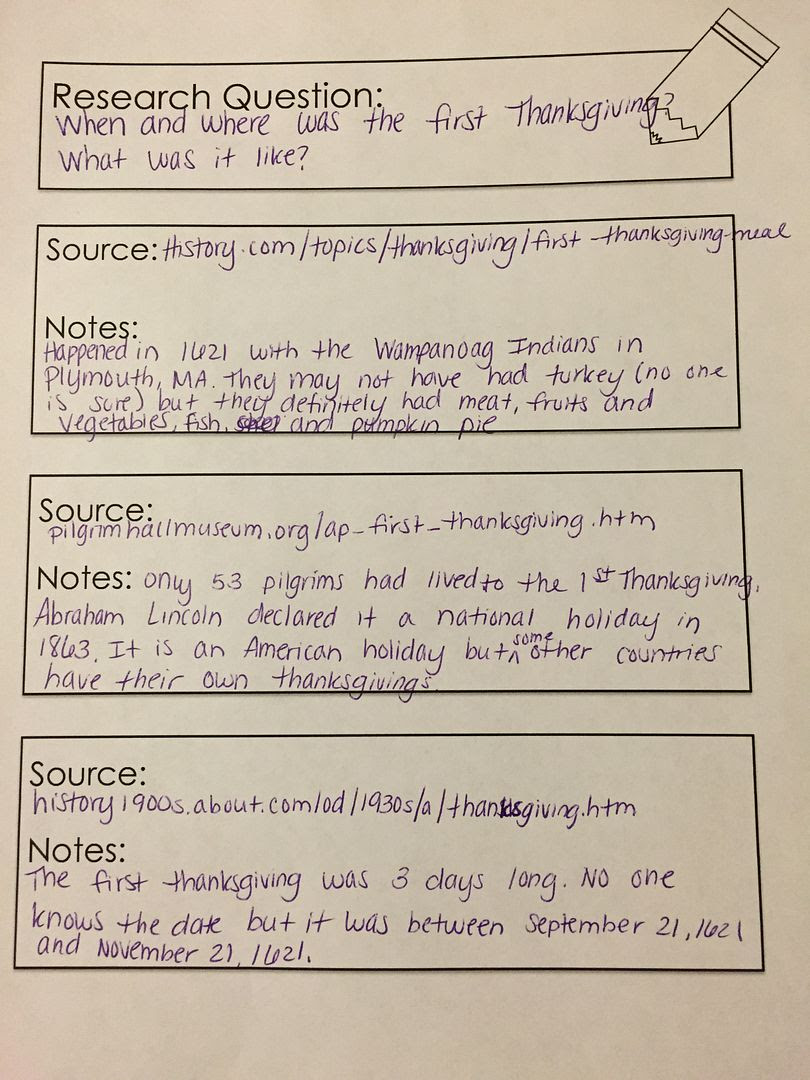 Research Question:
When and where was the first Thanksgiving?
What was it like?
Source: History.com/topics/thanksgiving/first-thanksgiving-meal
Notes:
Happened in 1621 with the Wampanoag Indians in
Plymouth, MA. They may not have had turkey (no one
is sure) but they definitely had meat, fruits and
vegetables, fish, and pumpkin pie
Source:
pilgrimhallmuseum.org/ap_first_thanksgiving.htm
Notes: only 53 pilgrims had lived to the 1st Thanksgiving.
Abraham Lincoln declared it a national holiday in
1863. It is an American holiday but some other countries
have their own thanksgivings.
Source:
history1900s.about.com/od/1930s/a/thanksgiving.htm
Notes:
The first thanksgiving was 3 days long. No one
knows the date but it was between September 21, 1621
and November 21, 1621.